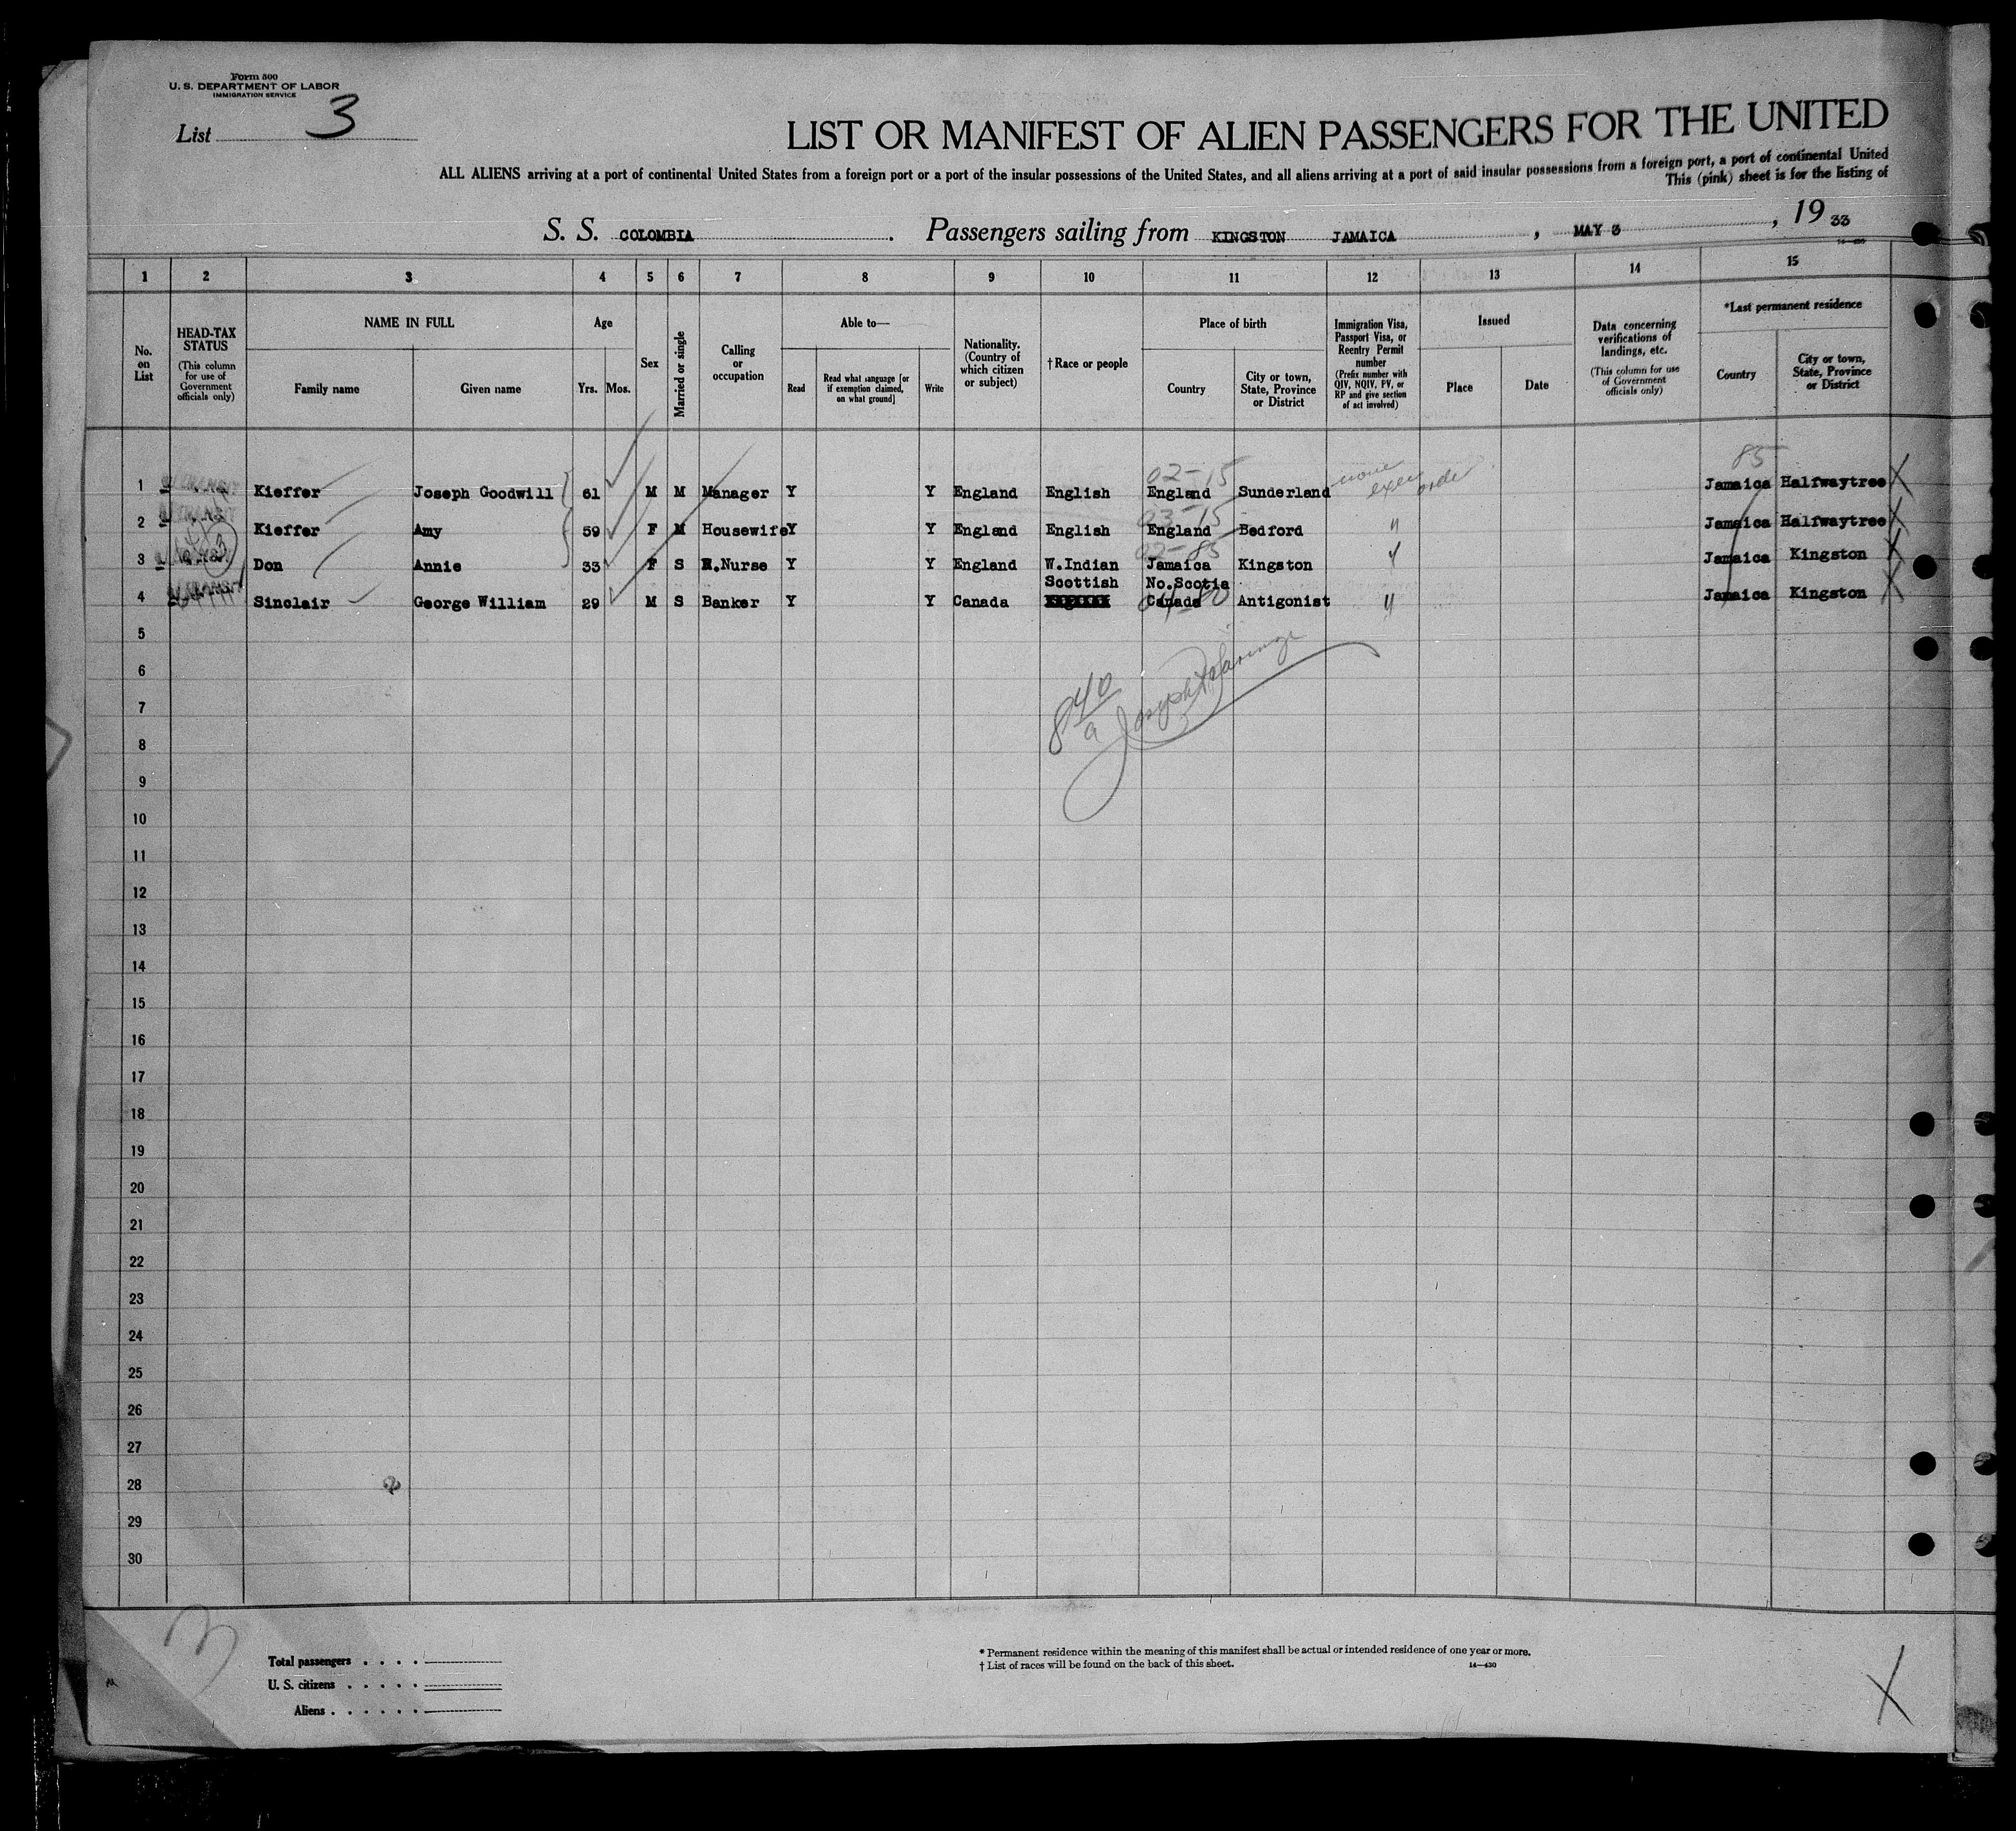 Form 500
U. S. DEPARTMENT OF LABOR
IMMIGRATION SERVICE
List 3
LIST OR MANIFEST OF ALIEN PASSENGERS FOR THE UNITED
ALL ALIENS arriving at a port of continental United States from a foreign port or a port of the insular possessions of the United States, and all aliens arriving at a port of said insular possessions from a foreign port, a port of continental United
This (pink) sheet is for the listing of
S. S. COLOMBIA . Passengers sailing from KINGSTON JAMAICA , MAY 3 , 19 33
1 2 3 4 5 6 7 8 9 10 11 12 13 14 15
No. on List
HEAD-TAX STATUS
(This column for use of Government officials only)
NAME IN FULL
Family name Given name
Age
Yrs. Mos.
Sex
Married or single
Calling or occupation
Able to—
Read
Read what language [or if exemption claimed, on what ground]
Write
Nationality. (Country of which citizen or subject)
†Race or people
Place of birth
Country
City or town, State, Province or District
Immigration Visa, Passport Visa, or Reentry Permit number
(Prefix number with QIV, NQIV, PV, or RP and give section of act involved)
Issued
Place Date
Data concerning verifications of landings, etc.
(This column for use of Government officials only)
*Last permanent residence
Country
City or town, State, Province or District
02-15 85
1 Kieffer Joseph Goodwill 61 M M Manager Y Y England English England Sunderland none exec order Jamaica Halfwaytree X
03-15
2 Kieffer Amy 59 F M Housewife Y Y England English England Bedford " Jamaica Halfwaytree X
02-85
3 Don Annie 33 F S R.Nurse Y Y England W.Indian Jamaica Kingston " Jamaica Kingston X
Scottish No.Scotia
4 TRANSIT Sinclair George William 29 M S Banker Y Y Canada Canada Antigonist " Jamaica Kingston X
5
6
7
8 840 a
9
10
11
12
13
14
15
16
17
18
19
20
21
22
23
24
25
26
27
28
29
30
3
Total passengers
U. S. citizens
Aliens
* Permanent residence within the meaning of this manifest shall be actual or intended residence of one year or more.
† List of races will be found on the back of this sheet. 14—430
X